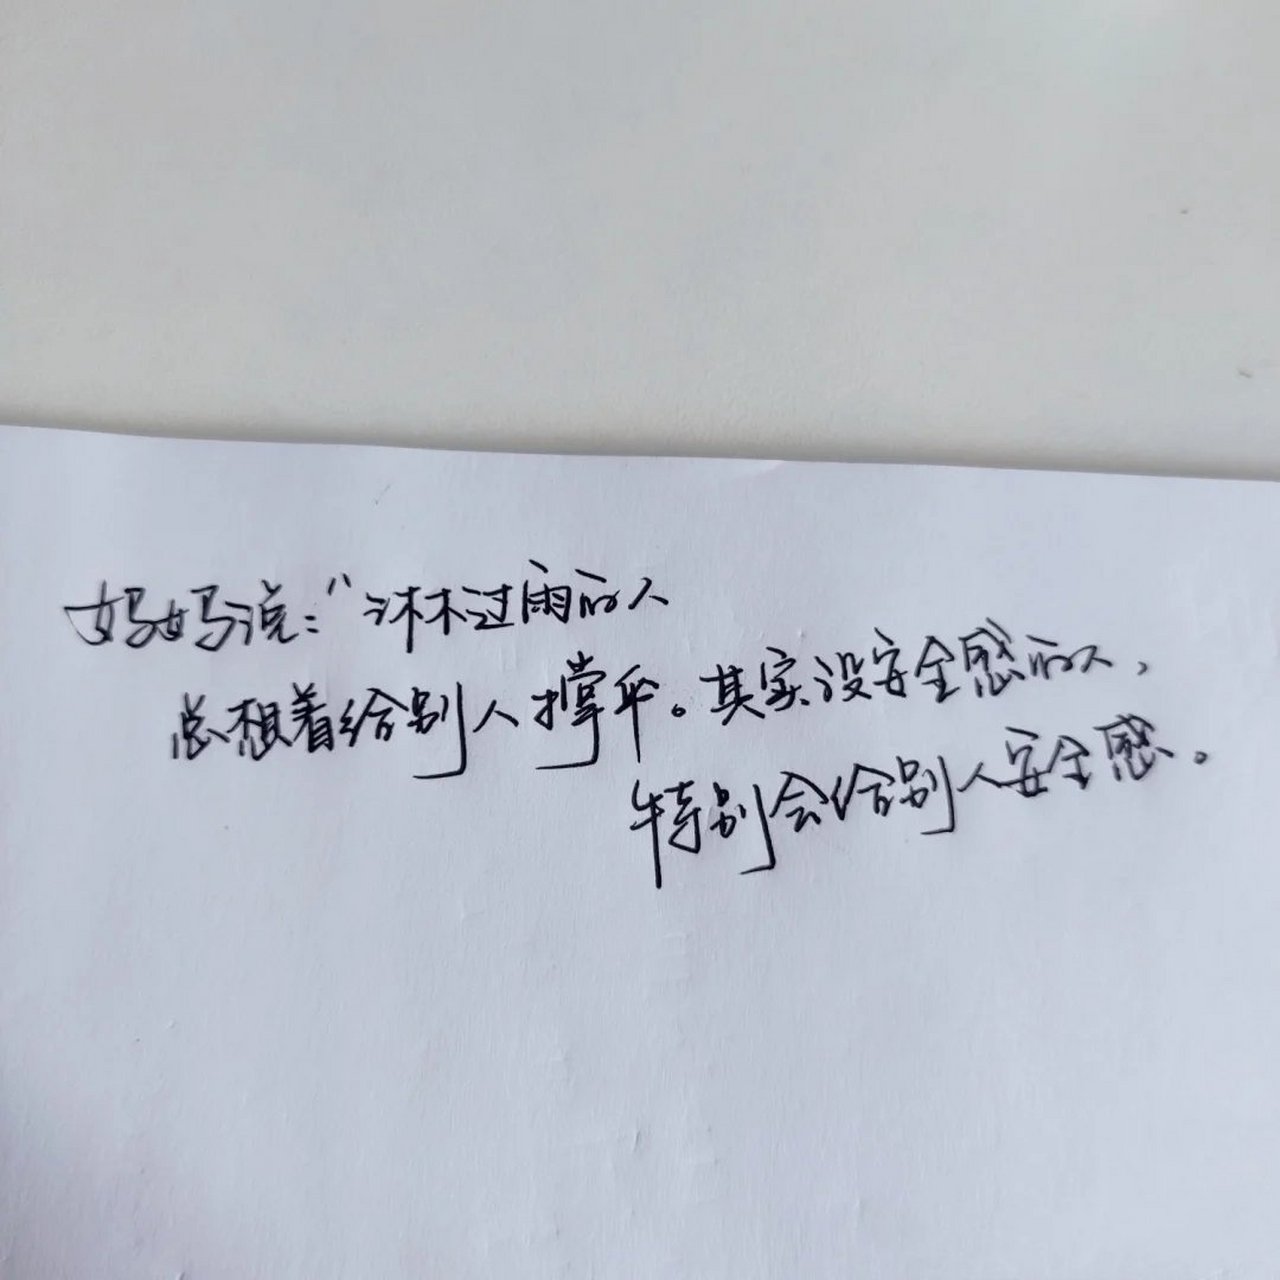 妈妈说：“淋过雨的人
总想着给别人撑伞。其实没安全感的人，
特别会给别人安全感。